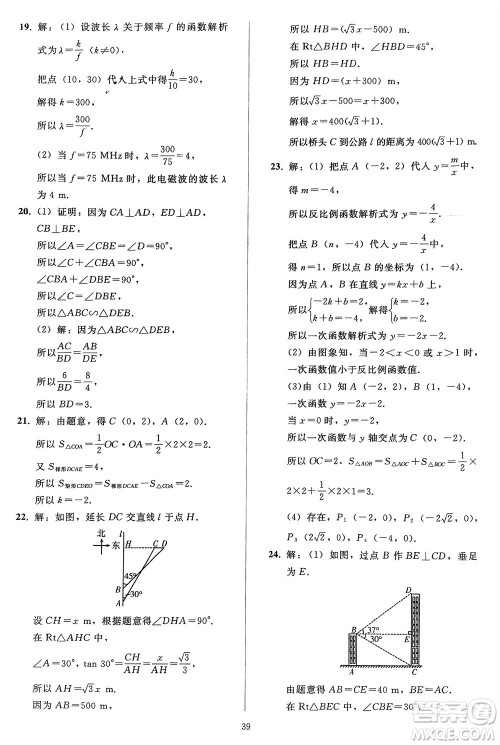 19. 解：（1）设波长 λ 关于频率 f 的函数解析
式为 λ=k/f (f>0)，
把点（10，30）代入上式中得 k/10=30，
解得 k=300，
所以 λ=300/f.
（2）当 f=75 MHz 时，λ=300/75=4.
所以当 f=75 MHz 时，此电磁波的波长 λ
为 4 m.
20. （1）证明：因为 CA⊥AD，ED⊥AD，
CB⊥BE，
所以∠A=∠CBE=∠D=90°.
所以∠C+∠CBA=90°，
∠CBA+∠DBE=90°.
所以∠C=∠DBE.
所以△ABC∽△DEB.
（2）解：因为△ABC∽△DEB，
所以 AC/BD=AB/DE.
所以 6/BD=8/4.
所以 BD=3.
21. 解：由题意，得 C（0，2），A（2，0）.
所以 S△COA=1/2 OC·OA=1/2×2×2=2.
又 S梯形DCAE=4，
所以 S矩形CDEO=S梯形DCAE-S△COA=2.
所以 k=-2.
22. 解：如图，延长 DC 交直线 l 于点 H.
北 l H C D
东
45°
B
A 30°
设 CH=x m，
根据题意，得∠DHA=90°.
在 Rt△AHC 中，
∠A=30°，tan 30°=CH/AH=x/AH=√3/3.
所以 AH=√3x m.
因为 AB=500 m，
所以 HB=(√3x-500) m.
在 Rt△BHD 中，∠HBD=45°，
所以 HB=HD.
因为 CD=300 m，
所以 √3x-500=x+300.
解得 x=400(√3+1).
所以桥头 C 到公路 l 的距离为 400(√3+1) m.
23. 解：（1）把点 A（-2，2）代入 y=m/x
中，得 m=-4.
所以反比例函数解析式为 y=-4/x.
把点 B（n，-4）代入 y=-4/x 中，得
n=1.所以点 B 的坐标为（1，-4）.
因为点 A，B 在直线 y=kx+b 上，
所以{-2k+b=2, k+b=-4. 解得{k=-2, b=-2.
所以一次函数解析式为 y=-2x-2.
（2）由图象知，当-2<x<0 或 x>1 时，
一次函数值小于反比例函数值.
（3）由（1）知，一次函数 y=-2x-2，
所以一次函数与 y 轴交点为（0，-2）.
所以 OC=2，S△AOB=S△AOC+S△BOC=1/2×
2×2+1/2×2×1=3.
（4）存在，P₁（2√2，0），P₂（-2√2，0），
24. 解：（1）如图，过点 B 作 BE⊥CD，垂足
为 E.
D
B 37° E
30°
A C
由题意得 AB=CE=40 m，BE=AC.
在 Rt△BEC 中，∠BEC=90°，
39